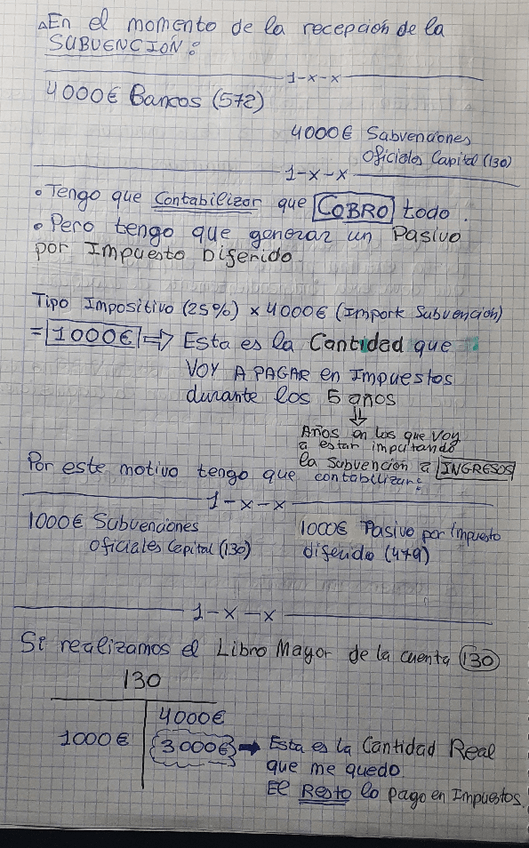 △En el momento de la recepción de la
SUBVENCIÓN:
1-x-x
4000€ Bancos (572)
4000€ Subvenciones
Oficiales Capital (130)
1-x-x
• Tengo que Contabilizar que COBRO todo.
• Pero tengo que generar un Pasivo
por Impuesto Diferido.
Tipo Impositivo (25%) x 4000€ (Import Subvención)
= 1000€ => Esta es la Cantidad que
VOY A PAGAR en Impuestos
durante los 5 años
Años en los que voy
a estar imputando
la subvención a INGRESOS
Por este motivo tengo que contabilizar:
1-x-x
1000€ Subvenciones 1000€ Pasivo por Impuesto
Oficiales Capital (130) diferido (479)
1-x-x
Si realizamos el Libro Mayor de la cuenta 130
130
4000€
1000€ 3000€ → Esta es la Cantidad Real
que me quedo.
El Resto lo pago en Impuestos.